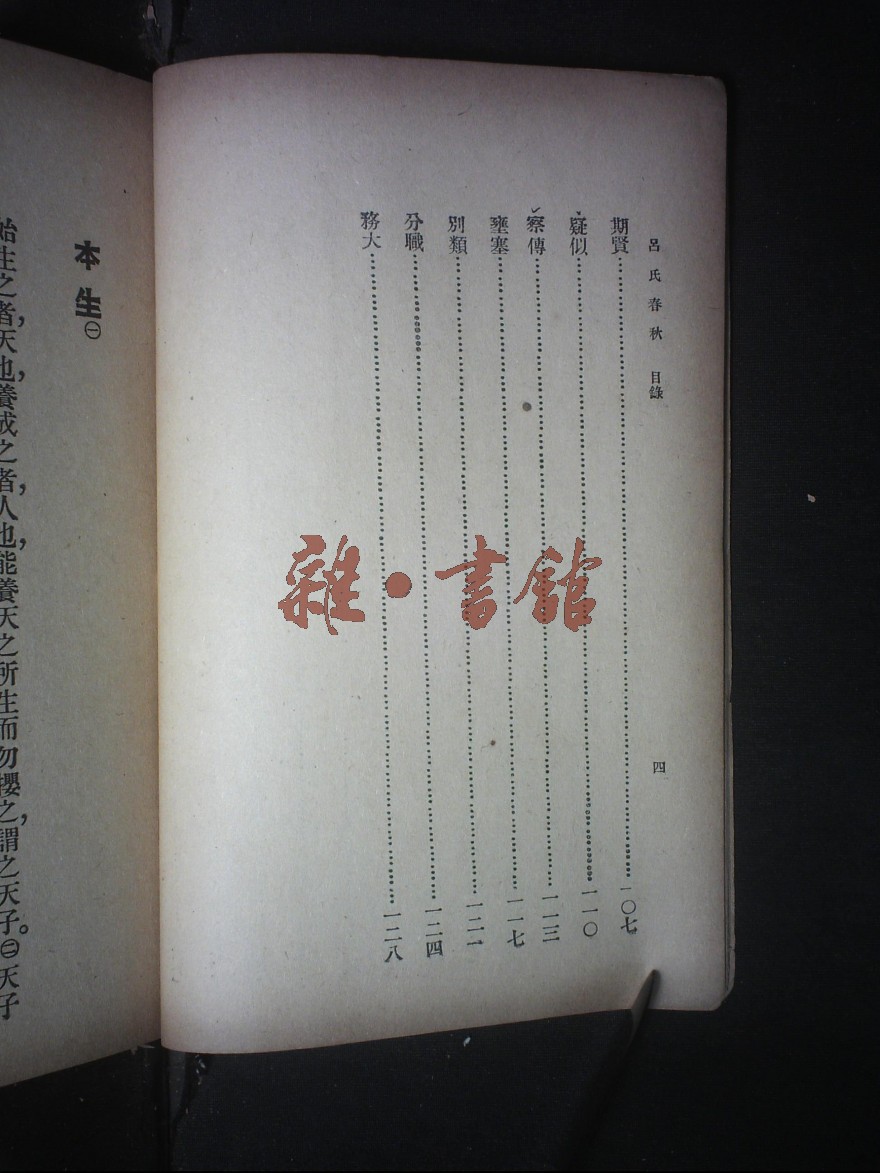 呂氏春秋 目錄
四
期賢⋯⋯一〇七
疑似⋯⋯一一〇
察傳⋯⋯一一三
壅塞⋯⋯一一七
別類⋯⋯一二一
分職⋯⋯一二四
務大⋯⋯一二八
雜·書館
本生㊀
始生之者,天也,養成之者,人也,能養天之所生而勿攖之,謂之天子。㊀天子